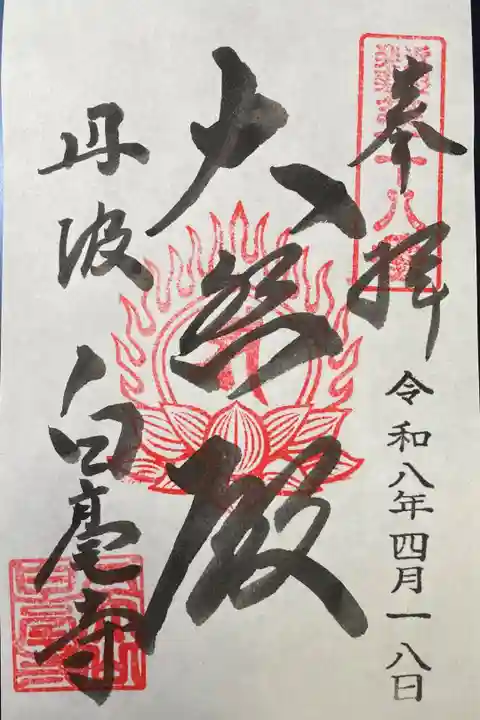 奉拝
令和八年四月一八日
大悲殿
丹波
白毫寺